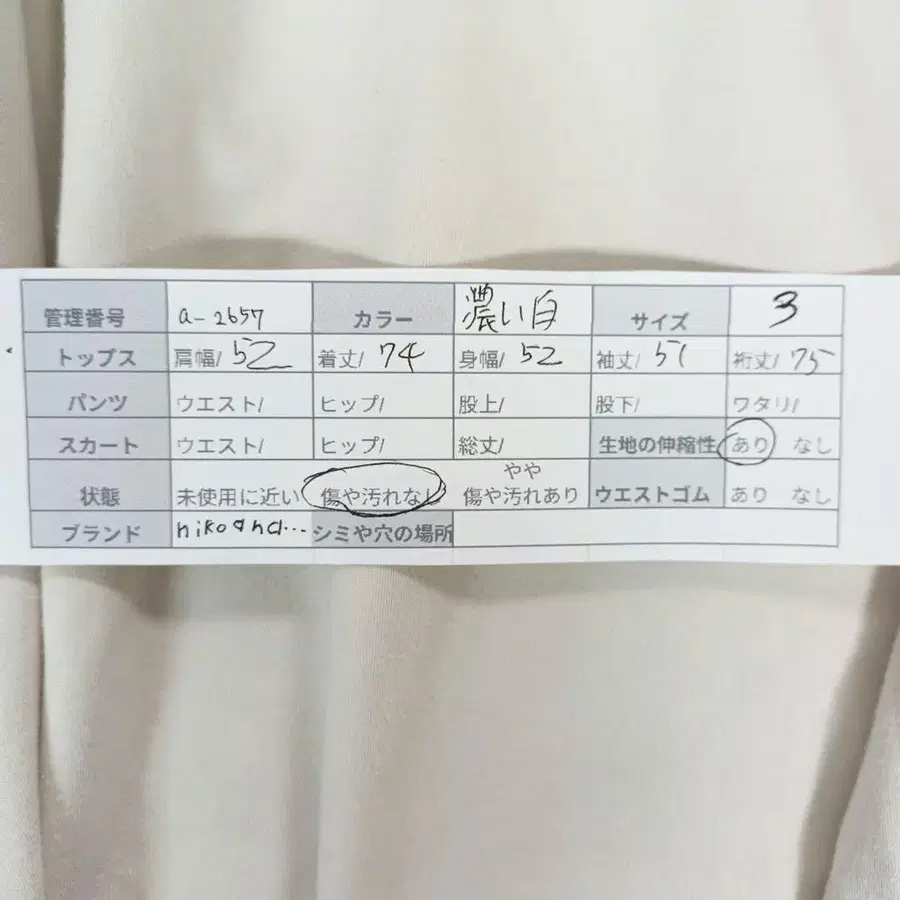 管理番号 a-2657 カラー 濃い白 サイズ 3
トップス 肩幅/ 52 着丈/ 74 身幅/ 52 袖丈/ 裄丈/ 75
パンツ ウエスト/ ヒップ/ 股上/ 股下/ ワタリ/
スカート ウエスト/ ヒップ/ 総丈/ 生地の伸縮性 あり なし
状態 未使用に近い 傷や汚れなし やや傷や汚れあり ウエストゴム あり なし
ブランド niko and... シミや穴の場所